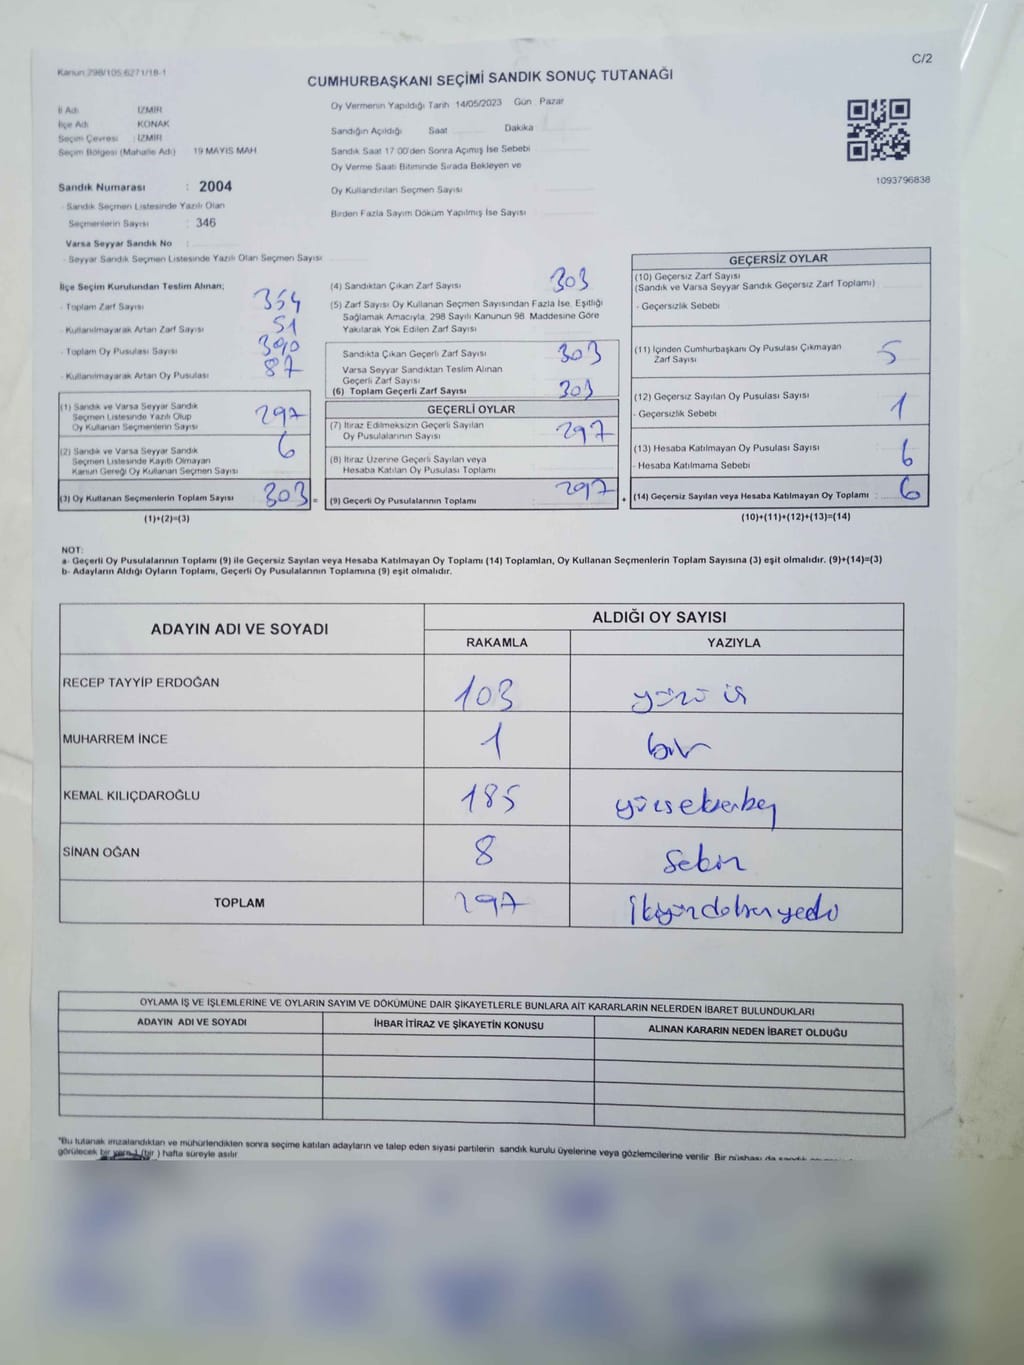 Kanun 298/105 6271/18-1
C/2
CUMHURBAŞKANI SEÇİMİ SANDIK SONUÇ TUTANAĞI
İl Adı : İZMİR
İlçe Adı : KONAK
Seçim Çevresi : İZMİR
Seçim Bölgesi (Mahalle Adı) : 19 MAYIS MAH
Sandık Numarası : 2004
- Sandık Seçmen Listesinde Yazılı Olan
Seçmenlerin Sayısı : 346
Varsa Seyyar Sandık No :
- Seyyar Sandık Seçmen Listesinde Yazılı Olan Seçmen Sayısı
Oy Vermenin Yapıldığı Tarih 14/05/2023 Gün Pazar
Sandığın Açıldığı Saat Dakika
Sandık Saat 17:00'den Sonra Açımış İse Sebebi
Oy Verme Saati Bitiminde Sırada Bekleyen ve
Oy Kullandırılan Seçmen Sayısı
Birden Fazla Sayım Döküm Yapılmış İse Sayısı
1093796838
İlçe Seçim Kurulundan Teslim Alınan;
- Toplam Zarf Sayısı 354
- Kullanılmayarak Artan Zarf Sayısı 51
- Toplam Oy Pusulası Sayısı 390
- Kullanılmayarak Artan Oy Pusulası 87
(1) Sandık ve Varsa Seyyar Sandık
Seçmen Listesinde Yazılı Olup
Oy Kullanan Seçmenlerin Sayısı 297
(2) Sandık ve Varsa Seyyar Sandık
Seçmen Listesinde Kayıtlı Olmayan
Kanun Gereği Oy Kullanan Seçmen Sayısı 6
(3) Oy Kullanan Seçmenlerin Toplam Sayısı 303 =
(1)+(2)=(3)
(4) Sandıktan Çıkan Zarf Sayısı 303
(5) Zarf Sayısı Oy Kullanan Seçmen Sayısından Fazla İse, Eşitliği
Sağlamak Amacıyla, 298 Sayılı Kanunun 98. Maddesine Göre
Yakılarak Yok Edilen Zarf Sayısı
Sandıkta Çıkan Geçerli Zarf Sayısı 303
Varsa Seyyar Sandıktan Teslim Alınan
Geçerli Zarf Sayısı
(6) Toplam Geçerli Zarf Sayısı 303
GEÇERLİ OYLAR
(7) İtiraz Edilmeksizin Geçerli Sayılan
Oy Pusulalarının Sayısı 297
(8) İtiraz Üzerine Geçerli Sayılan veya
Hesaba Katılan Oy Pusulası Toplamı
(9) Geçerli Oy Pusulalarının Toplamı 297 +
GEÇERSİZ OYLAR
(10) Geçersiz Zarf Sayısı
(Sandık ve Varsa Seyyar Sandık Geçersiz Zarf Toplamı)
- Geçersizlik Sebebi
(11) İçinden Cumhurbaşkanı Oy Pusulası Çıkmayan
Zarf Sayısı 5
(12) Geçersiz Sayılan Oy Pusulası Sayısı 1
- Geçersizlik Sebebi
(13) Hesaba Katılmayan Oy Pusulası Sayısı 6
- Hesaba Katılmama Sebebi
(14) Geçersiz Sayılan veya Hesaba Katılmayan Oy Toplamı : 6
(10)+(11)+(12)+(13)=(14)
NOT:
a- Geçerli Oy Pusulalarının Toplamı (9) ile Geçersiz Sayılan veya Hesaba Katılmayan Oy Toplamı (14) Toplamları, Oy Kullanan Seçmenlerin Toplam Sayısına (3) eşit olmalıdır. (9)+(14)=(3)
b- Adayların Aldığı Oyların Toplamı, Geçerli Oy Pusulalarının Toplamına (9) eşit olmalıdır.
ADAYIN ADI VE SOYADI
ALDIĞI OY SAYISI
RAKAMLA YAZIYLA
RECEP TAYYİP ERDOĞAN 103 yüzüç
MUHARREM İNCE 1 bir
KEMAL KILIÇDAROĞLU 185 yüzseksenbeş
SİNAN OĞAN 8 Sekiz
TOPLAM 297 İkiyüzdoksanyedi
OYLAMA İŞ VE İŞLEMLERİNE VE OYLARIN SAYIM VE DÖKÜMÜNE DAİR ŞİKAYETLERLE BUNLARA AİT KARARLARIN NELERDEN İBARET BULUNDUKLARI
ADAYIN ADI VE SOYADI İHBAR İTİRAZ VE ŞİKAYETİN KONUSU ALINAN KARARIN NEDEN İBARET OLDUĞU
"Bu tutanak imzalandıktan ve mühürlendikten sonra seçime katılan adayların ve talep eden siyasi partilerin sandık kurulu üyelerine veya gözlemcilerine verilir. Bir nüshası da sandık
görülecek bir yere 1 (bir ) hafta süreyle asılır